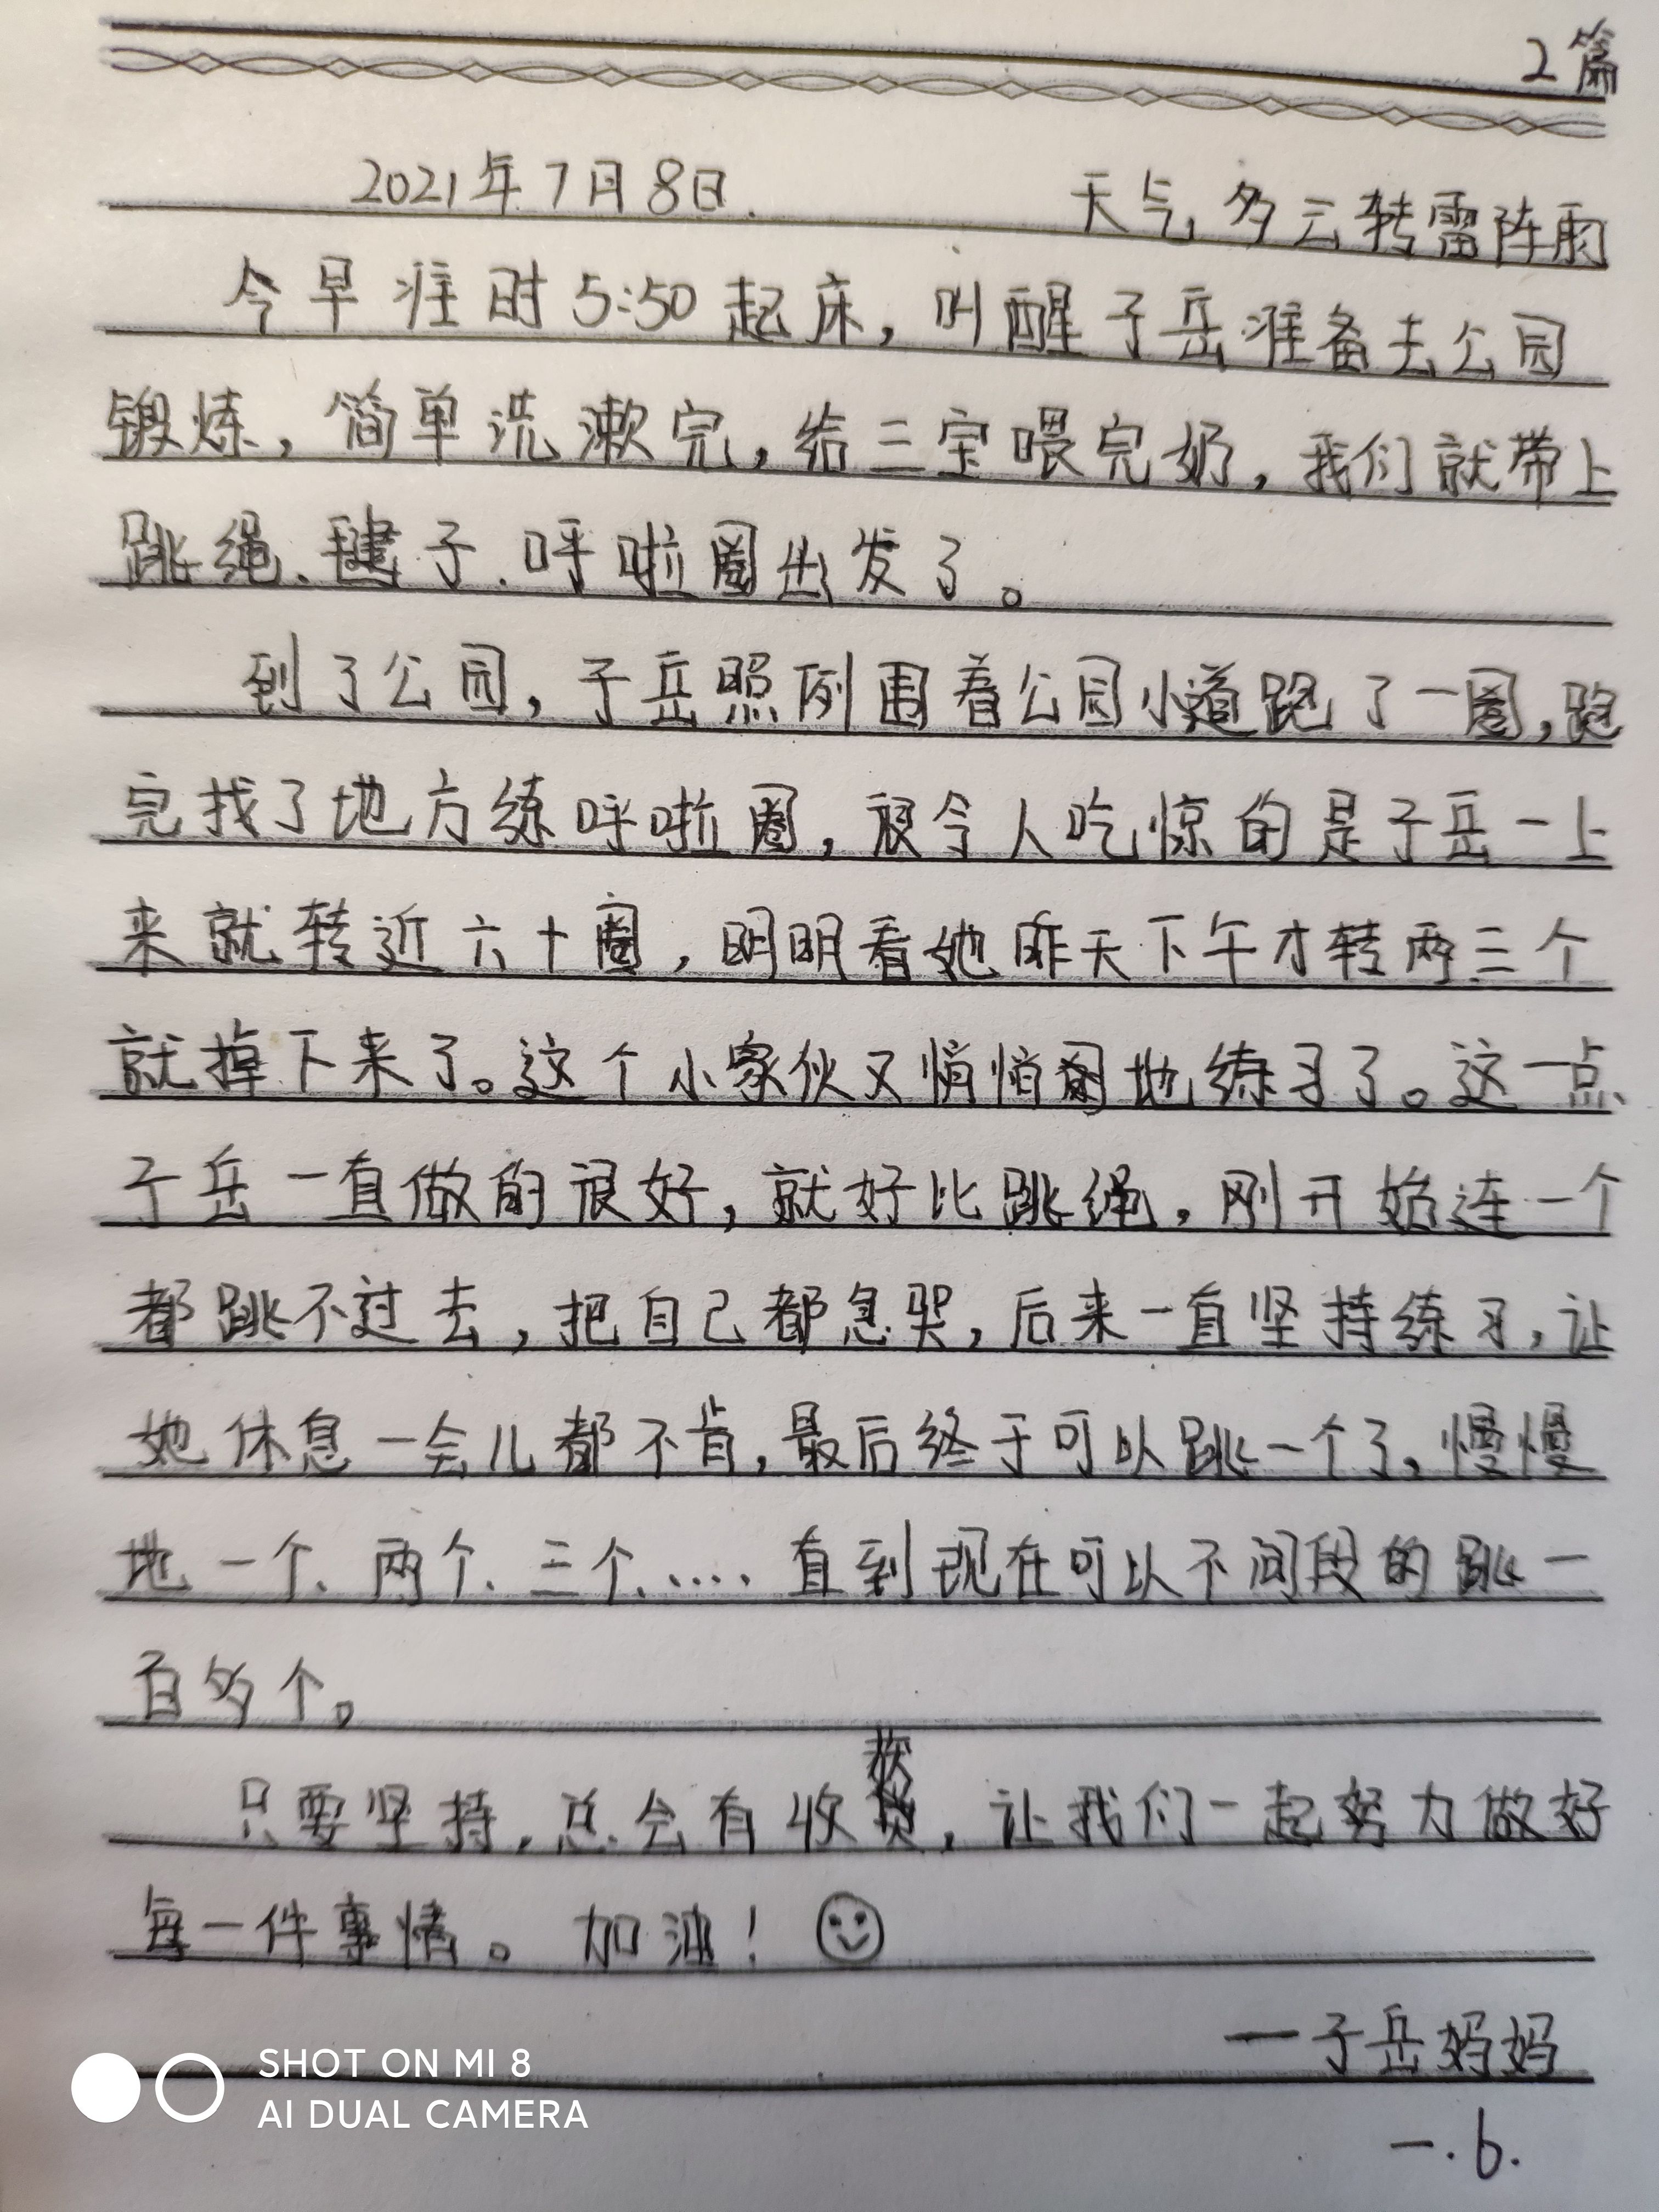 2篇
2021年7月8日. 天气,多云转雷阵雨
今早准时5:50起床，叫醒子岳准备去公园
锻炼，简单洗漱完，给三宝喂完奶，我们就带上
跳绳、毽子、呼啦圈出发了。
到了公园，子岳照例围着公园小道跑了一圈，跑
完找了地方练呼啦圈，很令人吃惊的是子岳一上
来就转近六十圈，明明看她昨天下午才转两三个
就掉下来了。这个小家伙又悄悄地练习了。这一点
子岳一直做的很好，就好比跳绳，刚开始连一个
都跳不过去，把自己都急哭，后来一直坚持练习，让
她休息一会儿都不肯，最后终于可以跳一个了，慢慢
地一个、两个、三个、…. 直到现在可以不间段的跳一
百多个。
只要坚持，总会有收获，让我们一起努力做好
每一件事情。加油！
一子岳妈妈
一.6.
SHOT ON MI 8
AI DUAL CAMERA